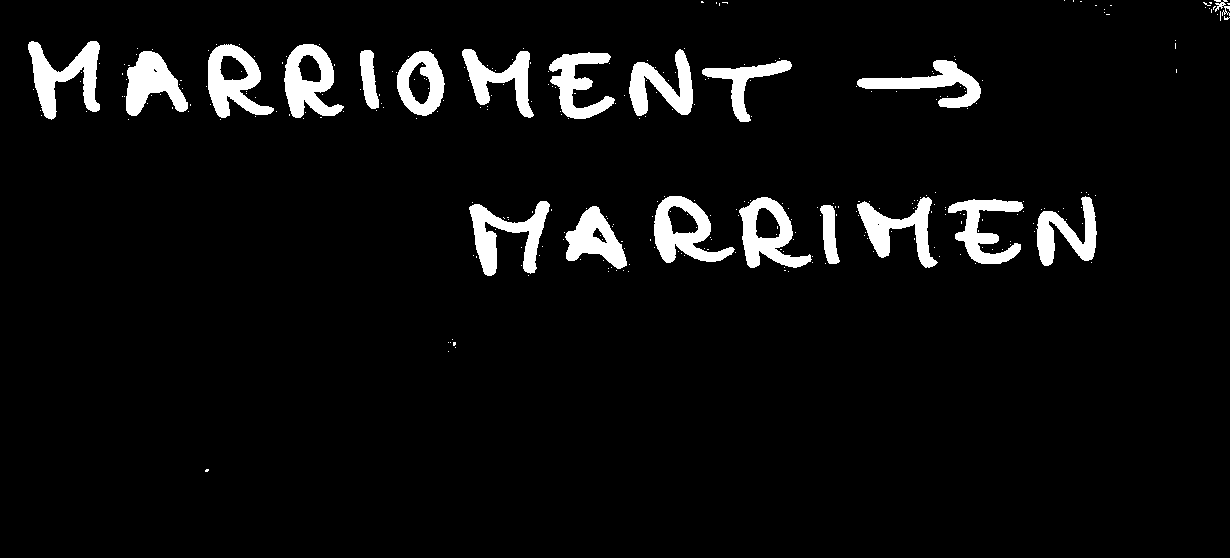 MARRIOMENT →
MARRIMEN